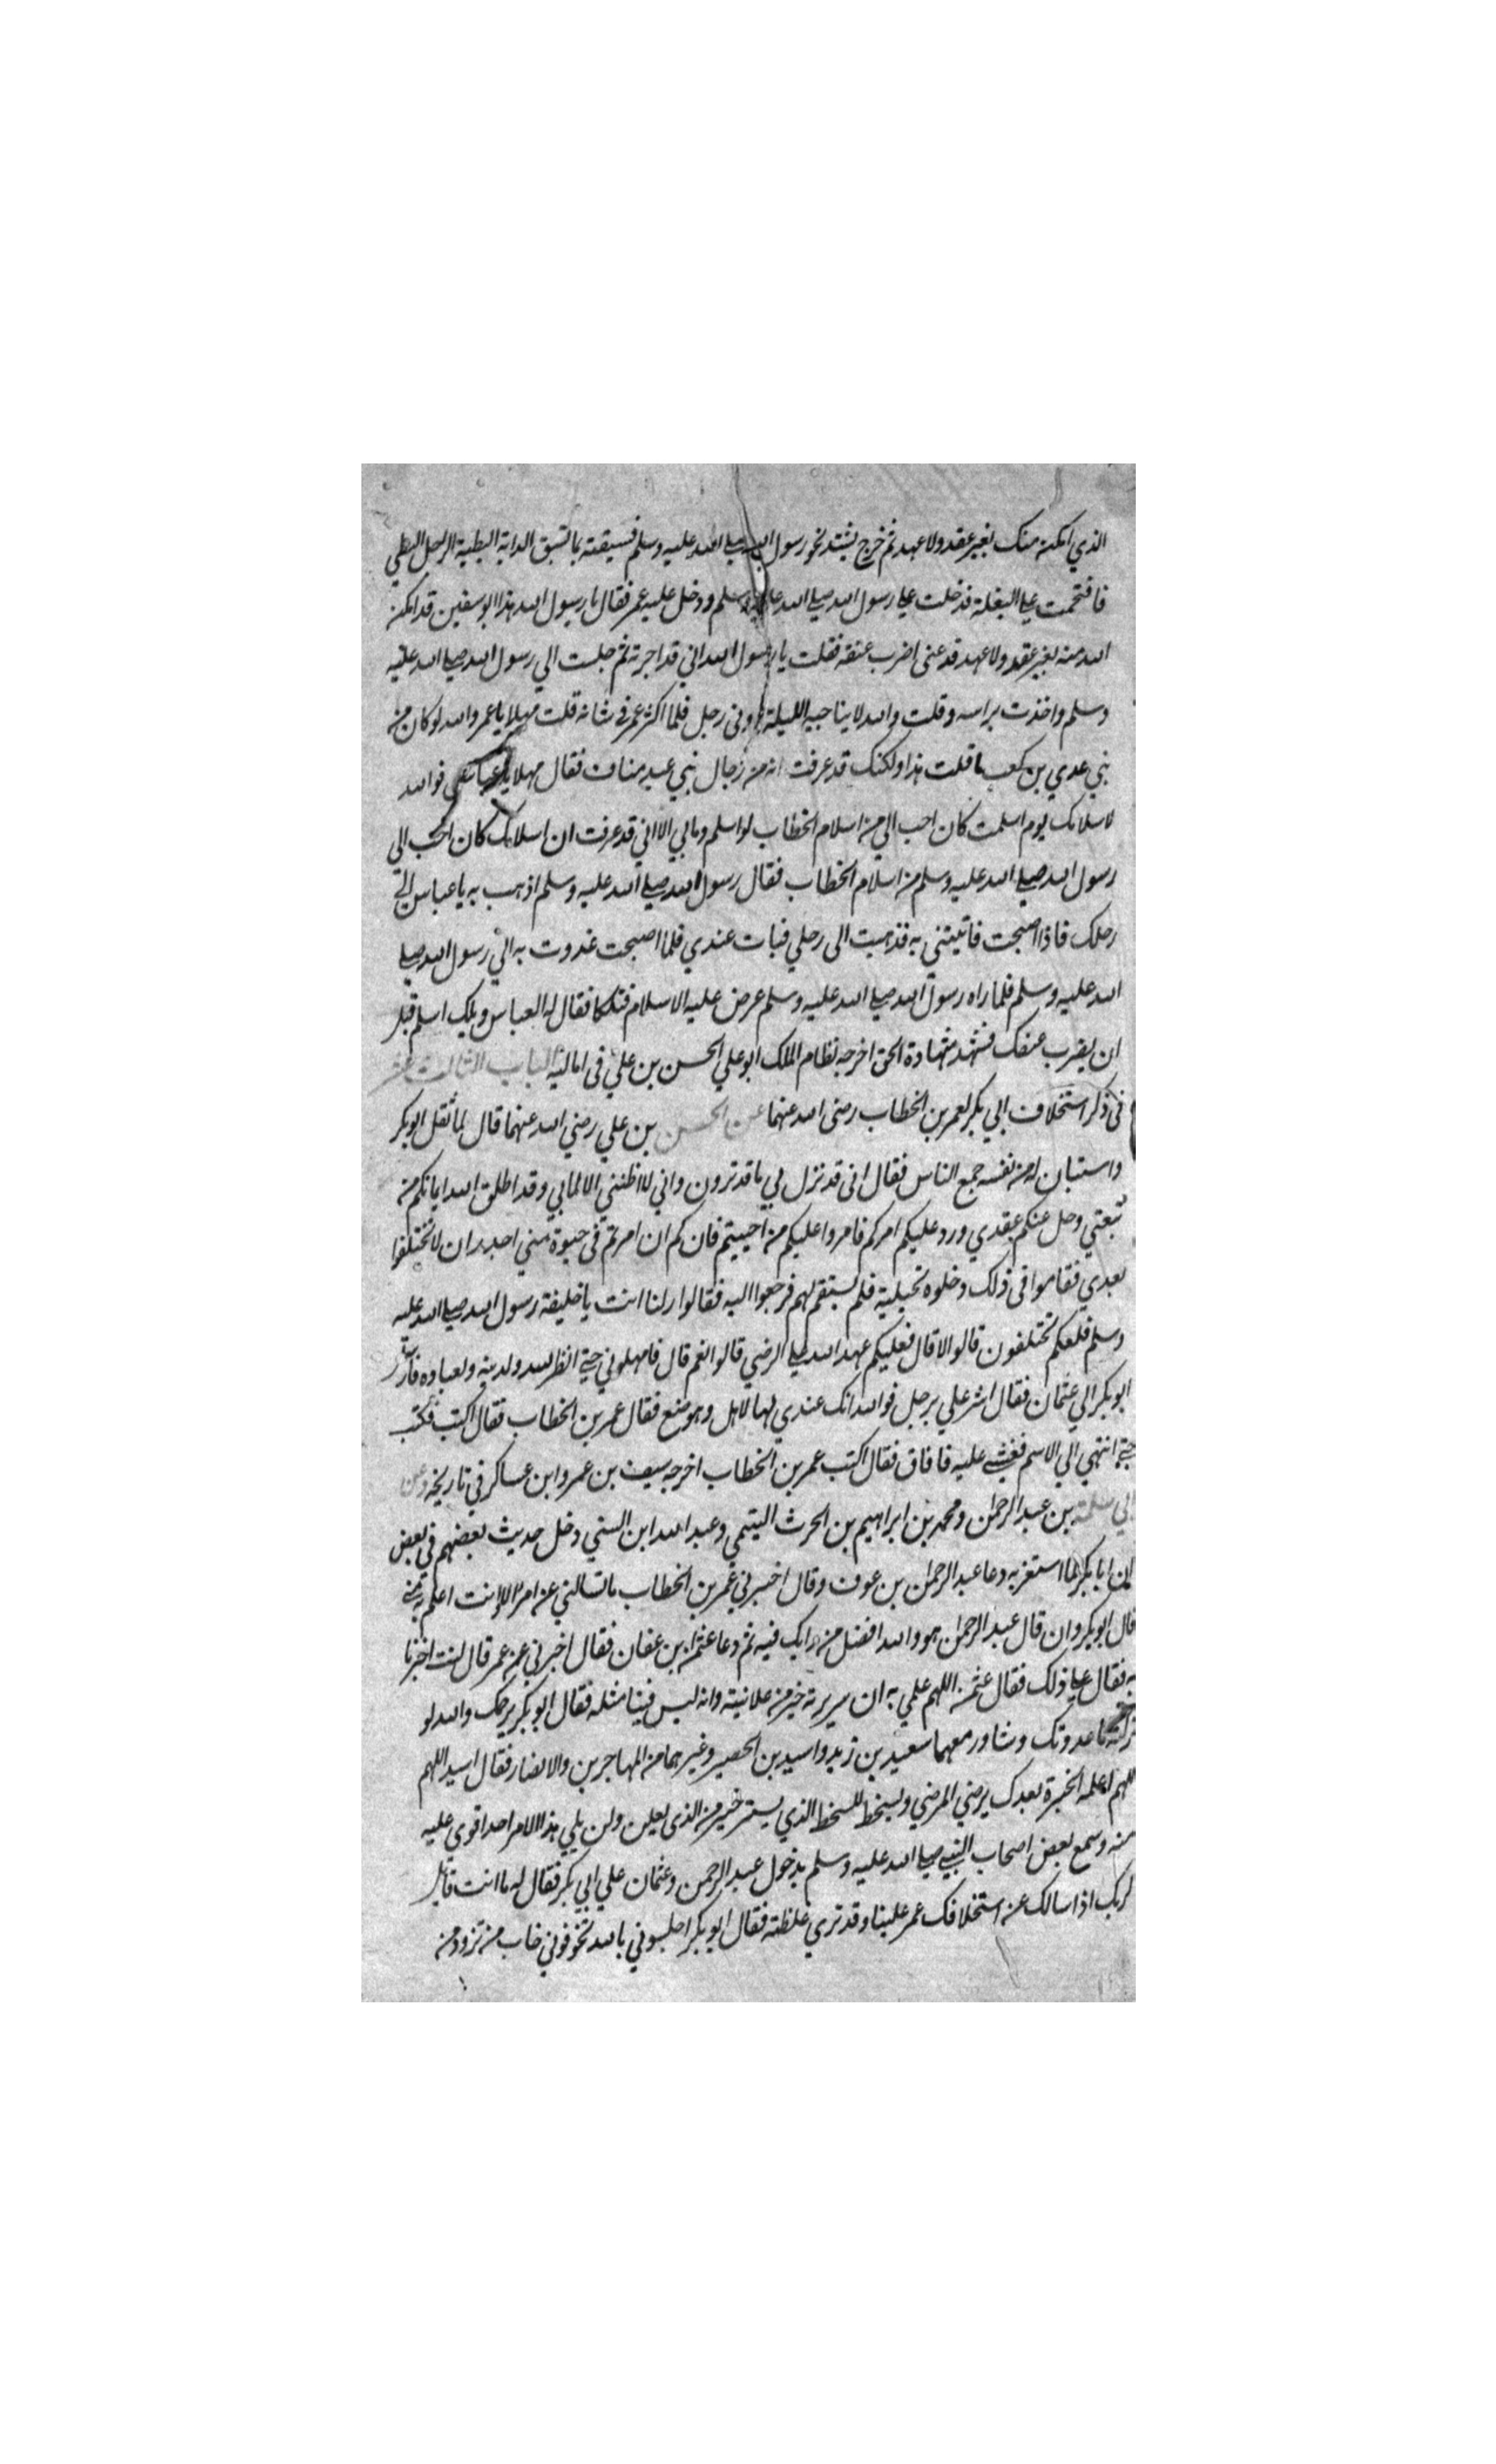 الذي امكن منك بغير عقد ولا عهد ثم خرج يشتد نحو رسول الله صلى الله عليه وسلم فسبقته بما تسبق الدابة البطيئة الرجل البطي
فاقتحمت على البغلة فدخلت على رسول الله صلى الله عليه وسلم ودخل عليه عمر فقال يا رسول الله هذا ابو سفين قد امكن
الله منه بغير عقد ولا عهد فدعنى اضرب عنقه فقلت يا رسول الله اني قد اجرته ثم جلست الي رسول الله صلى الله عليه
وسلم واخذت براسه وقلت والله لا يناجيه الليلة دونى رجل فلما اكثر عمر في شانه قلت مهلا يا عمر والله لو كان من
بني عدي بن كعب ما قلت هذا ولكنك قد عرفت انه من رجال بني عبد مناف فقال مهلا يا عباس فوالله
لاسلامك يوم اسلمت كان احب الي من اسلام الخطاب لو اسلم وما بي الا اني قد عرفت ان اسلامك كان احب الى
رسول الله صلى الله عليه وسلم من اسلام الخطاب فقال رسول الله صلى الله عليه وسلم اذهب به يا عباس الى
رحلك فاذا اصبحت فاتيتنى به فذهبت الى رحلي فبات عندي فلما اصبحت غدوت به الي رسول الله صلى
الله عليه وسلم فلما راه رسول الله صلى الله عليه وسلم عرض عليه الاسلام فتلكا فقال له العباس ويلك اسلم قبل
ان يضرب عنقك فشهد شهادة الحق اخرجه نظام الملك ابو علي الحسن بن علي فى اماليه الباب الثالث عشر
فى ذكر استخلاف ابي بكر لعمر بن الخطاب رضى الله عنهما عن الحسن بن علي رضي الله عنهما قال لما ثقل ابو بكر
واستبان له من نفسه جمع الناس فقال انى قد نزل بي ما قد ترون واني لا اظننى الا لمابي وقد اطلق الله ايمانكم من
بيعتي وحل عنكم عقدي ورد عليكم امركم فامروا عليكم من احببتم فانكم ان امرتم فى حيوة مني اجدر ان لا تختلفوا
بعدي فقاموا فى ذلك وخلوه تخيلية فلم يستقم لهم فرجعوا اليه فقالوا رلنا انت يا خليفة رسول الله صلى الله عليه
وسلم فلعلكم تختلفون قالوا لا قال فعليكم عهد الله على الرضي قالوا نعم قال فامهلوني حتى انظر لله ولدينه ولعباده فارسل
ابو بكر الي عثمان فقال اشر علي برجل فوالله انك عندي لها لاهل وموضع فقال عمر بن الخطاب فقال اكتب فكتب
حتى انتهي الي الاسم فغشى عليه فافاق فقال اكتب عمر بن الخطاب اخرجه سيف بن عمر وابن عساكر في تاريخه وعن
ابي سلمة بن عبد الرحمن ومحمد بن ابراهيم بن الحرث التيمي وعبد الله ابن السني دخل حديث بعضهم في بعض
ان ابا بكر لما استعز به دعا عبد الرحمن بن عوف وقال اخبرني عمر بن الخطاب ما تسالني عن امر الا وانت اعلم به مني
قال ابو بكر وان قال عبد الرحمن هو والله افضل من رايك فيه ثم دعا عثمان بن عفان فقال اخبرني عن عمر قال انت اخبرنا
به فقال على ذلك فقال عثمن اللهم علمي به ان سريرته خير من علانيته وانه ليس فينا مثله فقال ابو بكر يرحمك والله لو
تركته ما عدوتك وشاور معهما سعيد بن زيد واسيد بن الحصير وغيرهما من المهاجرين والانصار فقال اسيد اللهم
اللهم اعلمه الخيرة بعدك يرضي المرضي ويسخط للسخط الذي يستر خير من الذى يعلن ولن يلي هذا الامر احد اقوى عليه
منه وسمع بعض اصحاب النبي صلى الله عليه وسلم بدخول عبد الرحمن وعثمان علي ابي بكر فقال له ما انت قايل
لربك اذا سالك عن استخلافك عمر علينا وقد تري غلظته فقال ابو بكر اجلسوني بالله تخوفوني خاب من تزود من